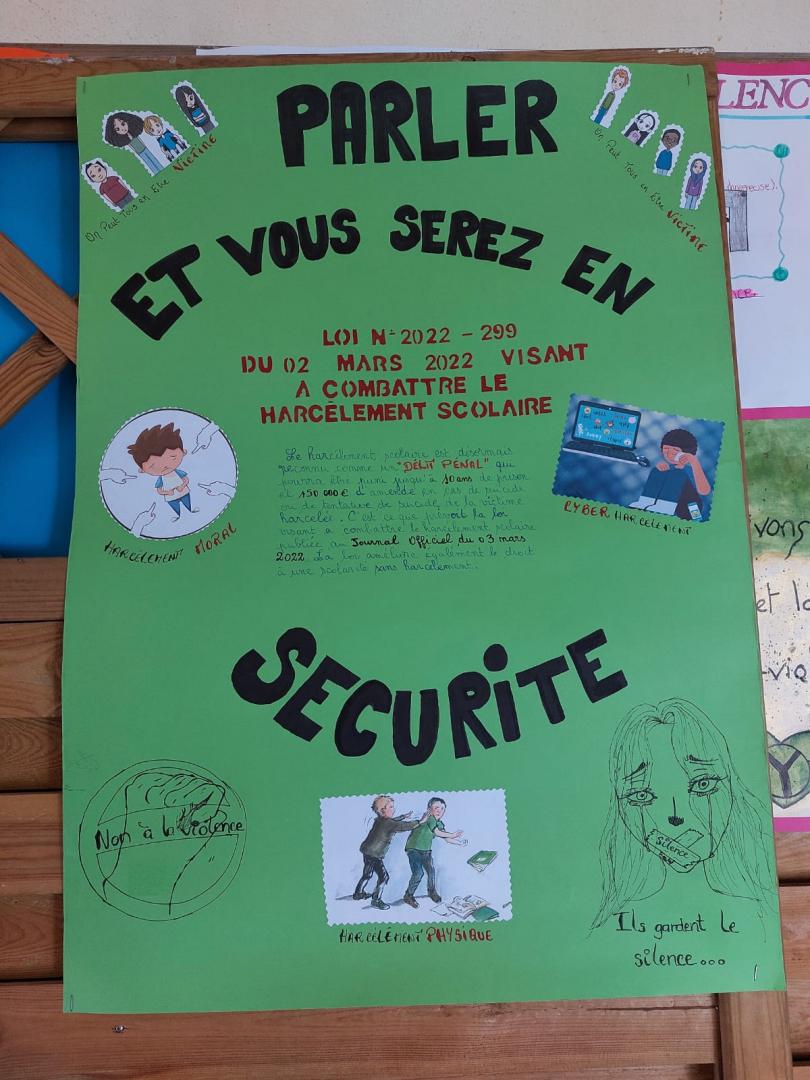 PARLER
On Peut Tous en Être VICTIME
On Peut Tous en Être VICTIME
ET VOUS SEREZ EN
LOI N° 2022 - 299
DU 02 MARS 2022 VISANT
A COMBATTRE LE
HARCÈLEMENT SCOLAIRE
Le harcèlement scolaire est désormais
reconnu comme un "DÉLIT PÉNAL" qui
pourra être puni jusqu'à 10 ans de prison
et 150 000 € d'amende en cas de suicide
ou de tentative de suicide de la victime
harcelée. C'est ce que prévoit la loi
visant à combattre le harcèlement scolaire
publiée au Journal Officiel du 03 mars
2022. La loi améliore également le droit
à une scolarité sans harcèlement.
HARCÈLEMENT MORAL
CYBER HARCÈLEMENT
SECURITE
Non à la violence
HARCÉLÉMENT PHYSIQUE
silence
Ils gardent le
silence...
LENC
vons
et la